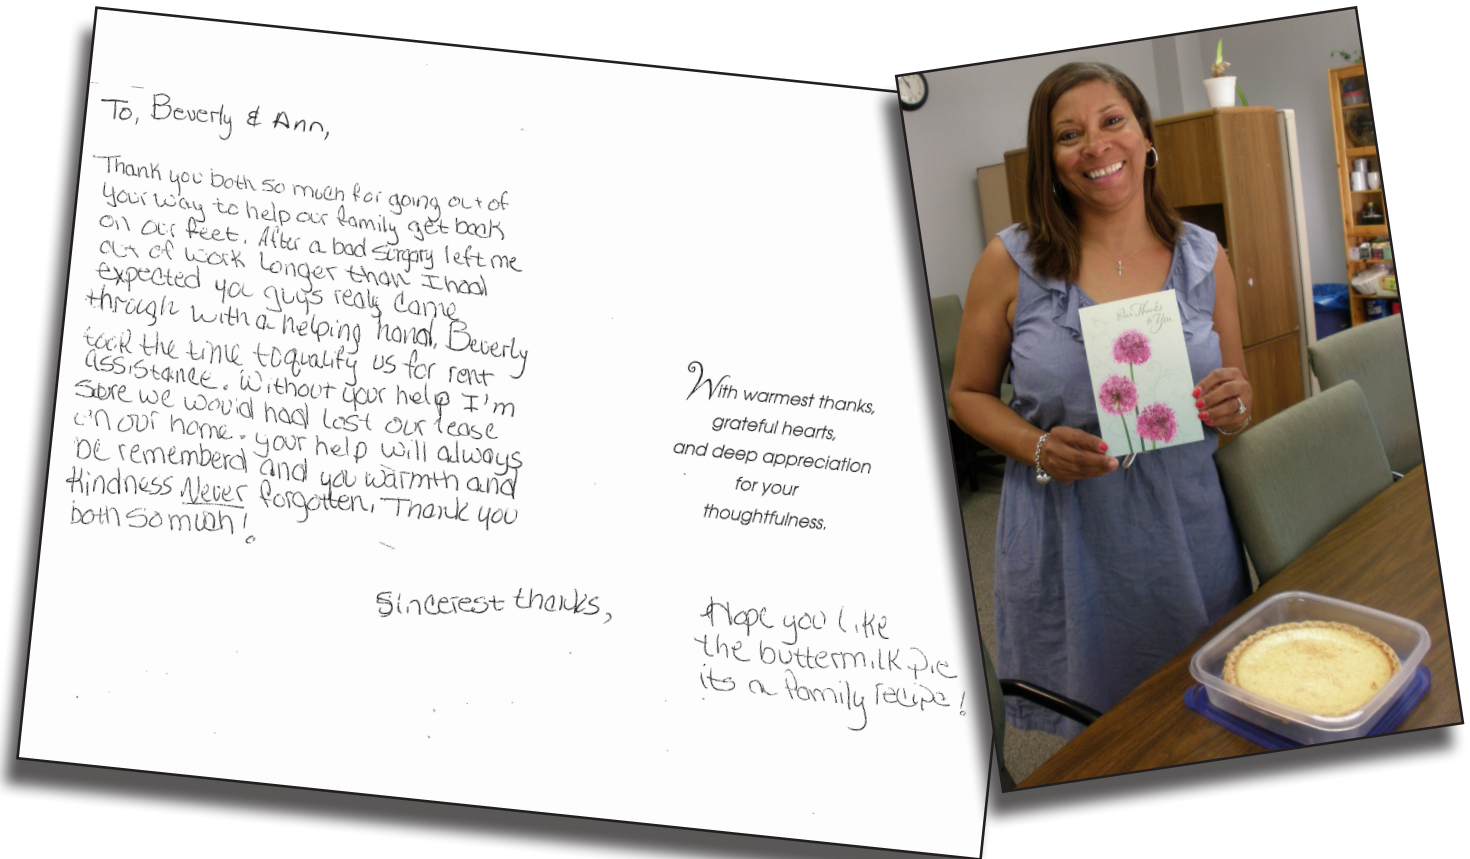 To, Beverly & Ann,
Thank you both so much for going out of
your way to help our family get back
on our feet. After a bad surgary left me
out of work longer than I had
expected you guys realy came
through with a helping hand, Beverly
took the time to qualify us for rent
assistance. Without your help I'm
sure we would had lost our lease
on our home. your help will always
be rememberd and you warmth and
Kindness Never forgotten, Thank you
both so much!
Sincerest thanks,
With warmest thanks,
grateful hearts,
and deep appreciation
for your
thoughtfulness.
Hope you like
the buttermilk pie
its a family recipe!
Our Thanks
to You